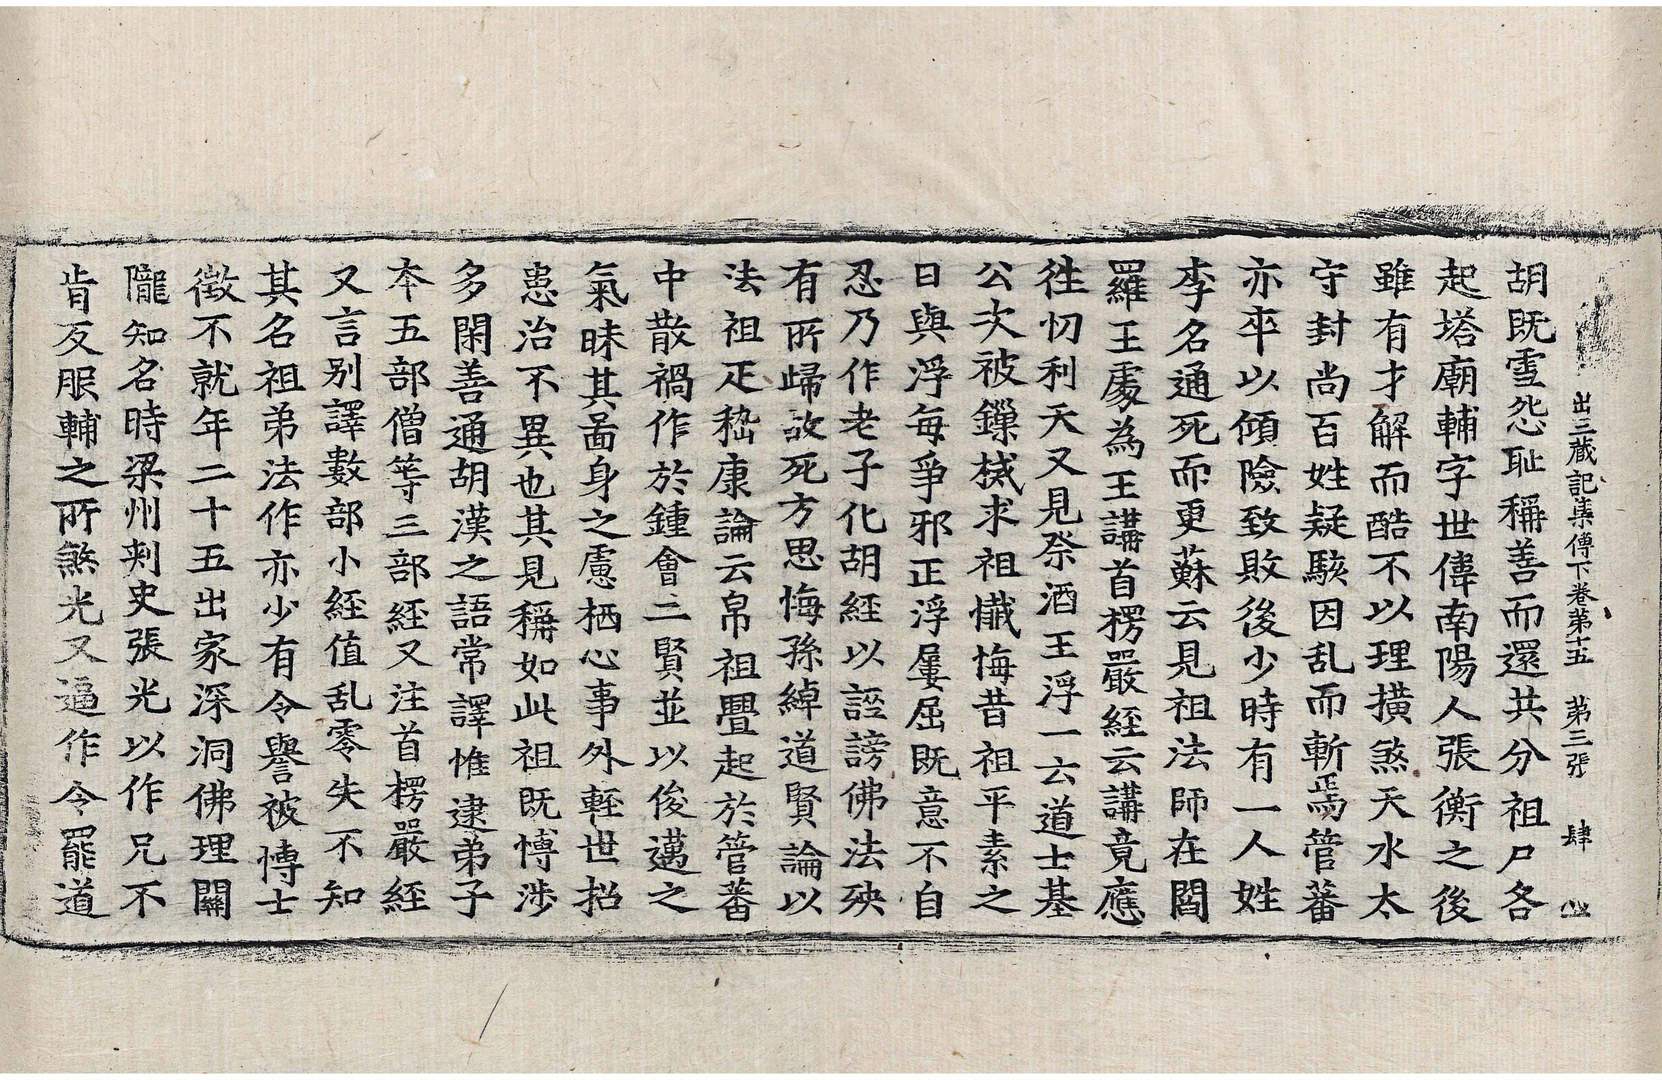 出三藏記集傳下卷第十五 第三張 肆
胡既雪怨耻稱善而還共分祖尸各
起塔廟輔字世偉南陽人張衡之後
雖有才解而酷不以理横煞天水太
守封尚百姓疑駭因乱而斬焉管蕃
亦卒以傾險致敗後少時有一人姓
李名通死而更蘇云見祖法師在閻
羅王處為王講首楞嚴經云講竟應
徃忉利天又見祭酒王浮一云道士基
公次被鏁械求祖懺悔昔祖平素之
日與浮每爭邪正浮屢屈既意不自
忍乃作老子化胡經以誣謗佛法殃
有所歸故死方思悔孫綽道賢論以
法祖疋嵇康論云帛祖舋起於管蕃
中散禍作於鍾會二賢並以俊邁之
氣昧其啚身之慮栖心事外輕世招
患治不異也其見稱如此祖既愽涉
多閑善通胡漢之語常譯惟逮弟子
夲五部僧等三部經又注首楞嚴經
又言别譯數部小經值乱零失不知
其名祖弟法作亦少有令譽被愽士
徵不就年二十五出家深洞佛理關
隴知名時梁州刺史張光以作兄不
肯反服輔之所煞光又逼作令罷道